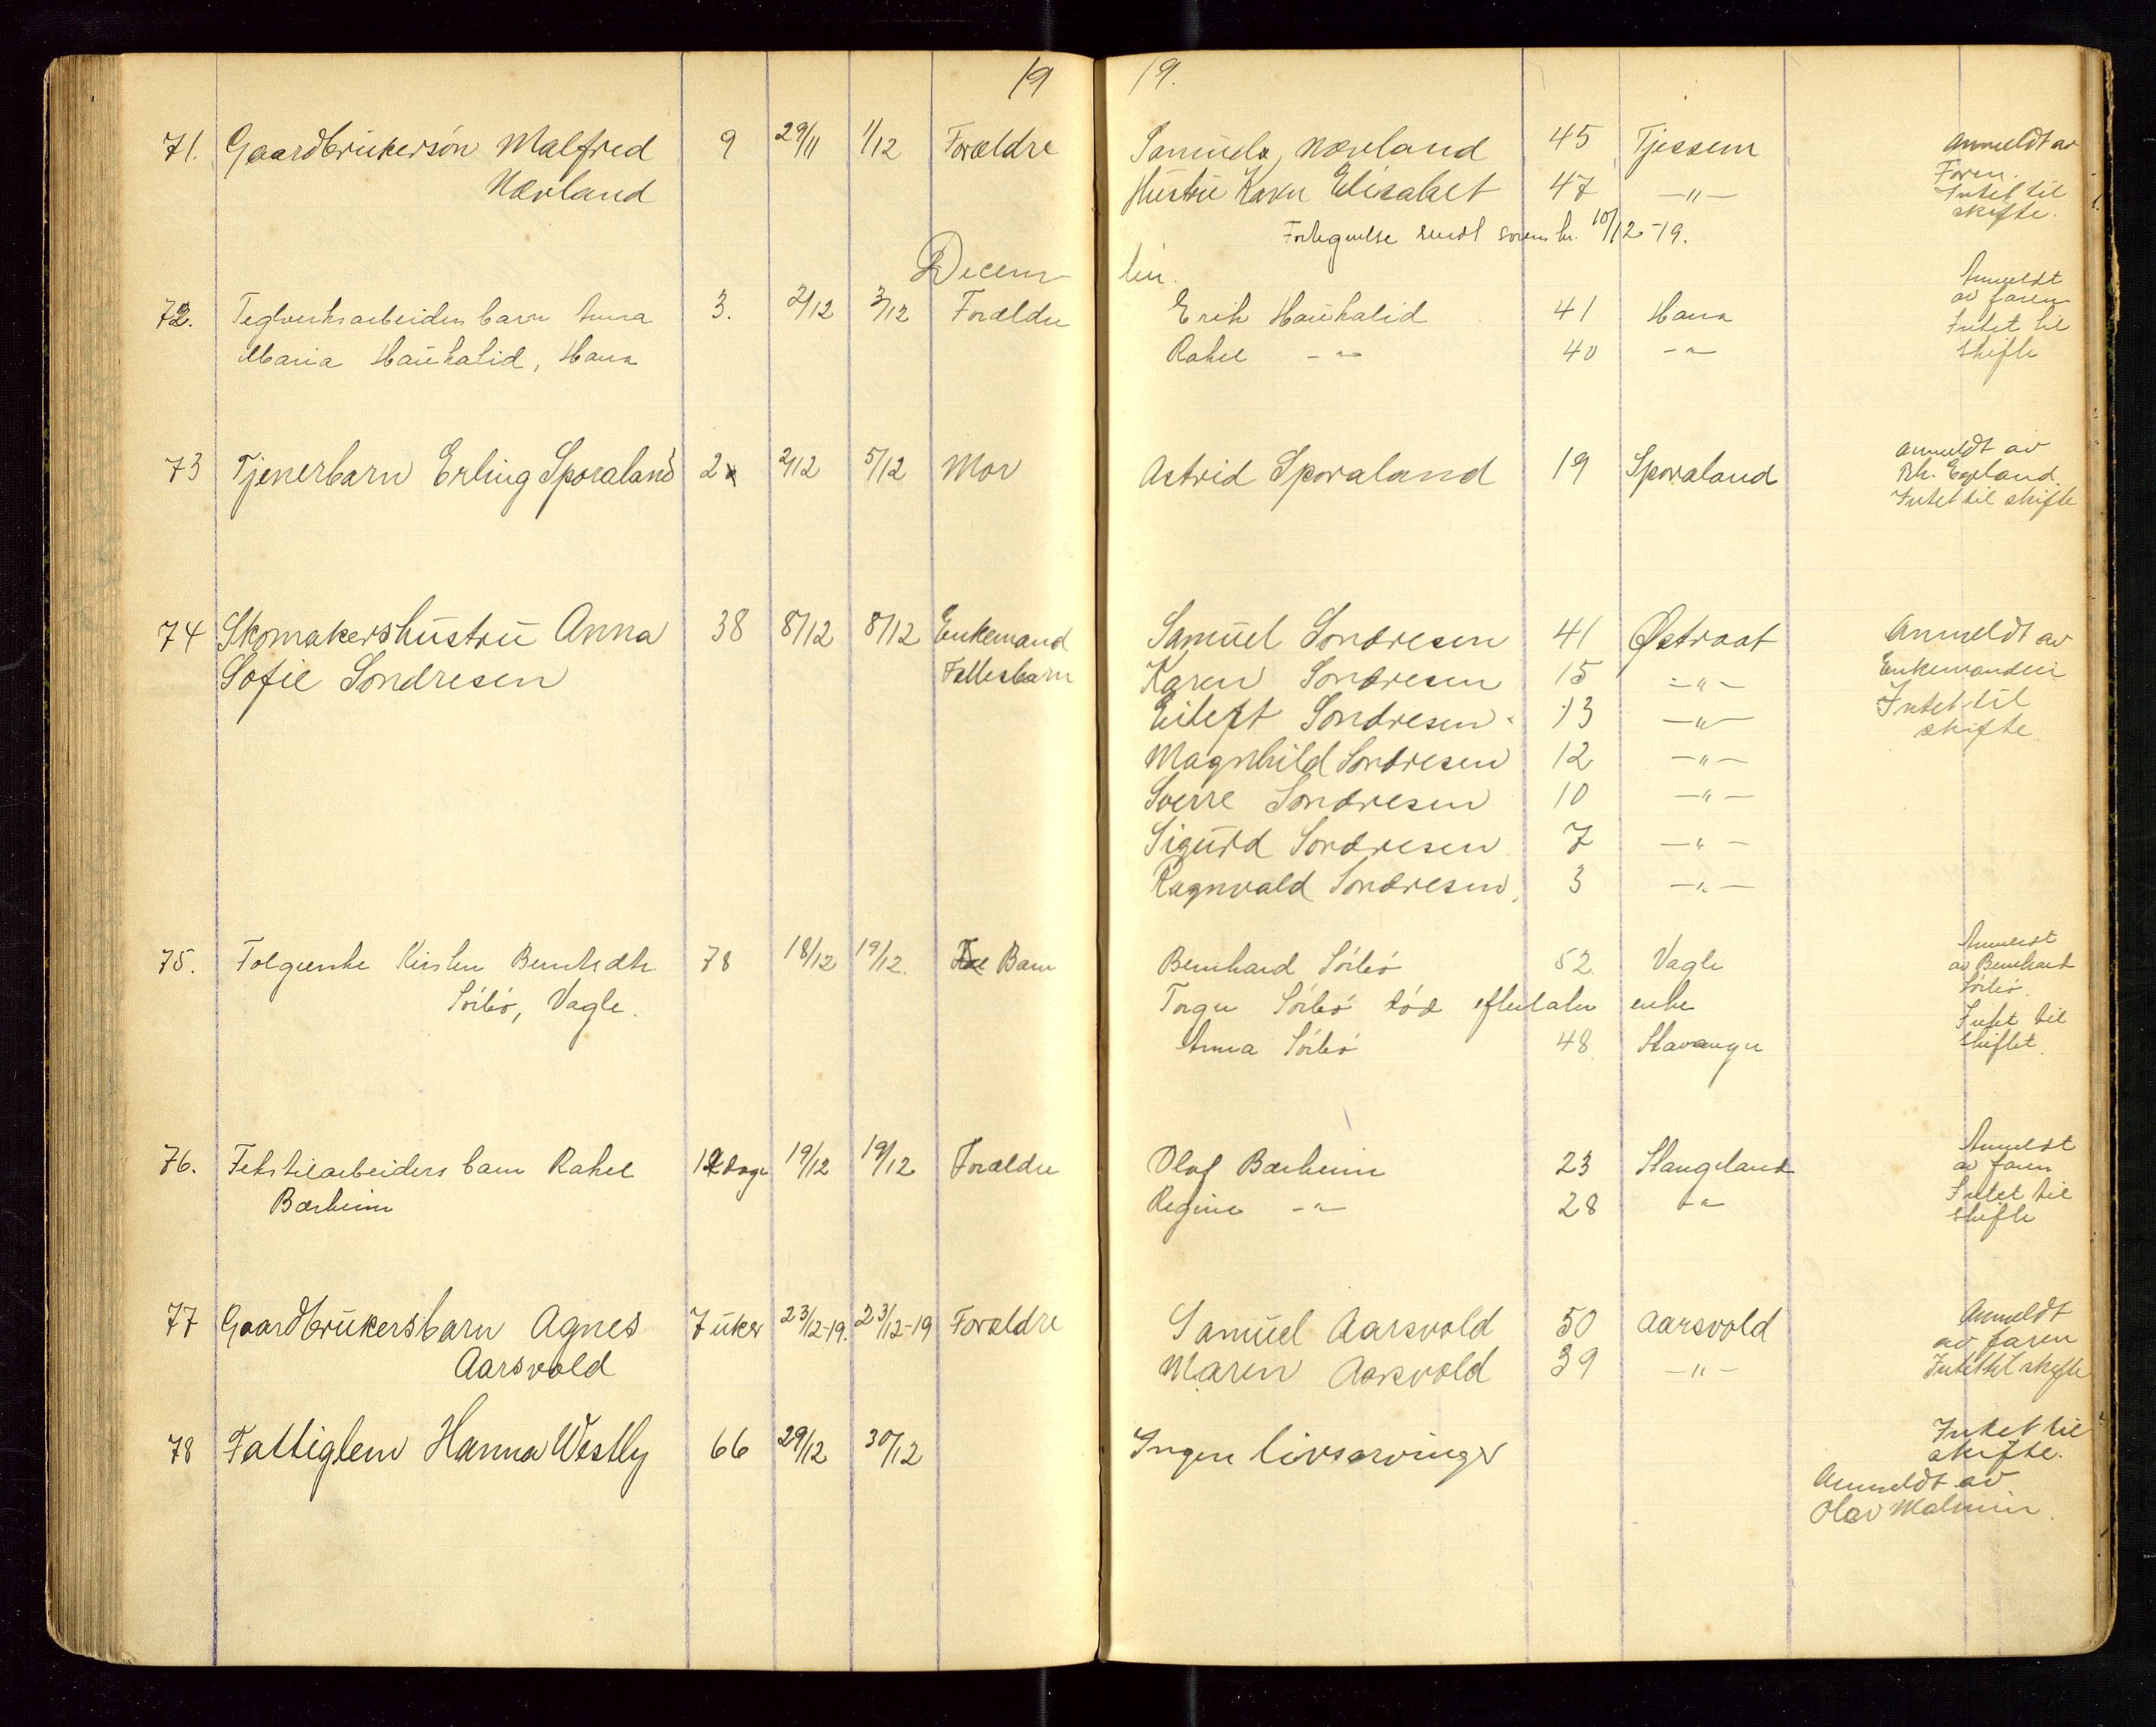 19 19.
71. Gaardbrukersön Malfred 9 29/11 1/12 Forældre Samuel Nærland 45 Tjessem Anmeldt av
Nærland Hustru Karen Elisabet 47 —"— Faren.
Intet til
skifte.
Fortegnelse sendt sorenskr. 10/12-19.
Decem- ber.
72. Teglverksarbeiders barn Anna 3. 2/12 3/12 Forældre Erik Haukalid 41 Hana Anmeldt
av faren
Maria Haukalid, Hana Rakel —"— 40 —"— Intet til
skifte
73 Tjenerbarn Erling Sporaland 2 2/12 5/12 Mor Astrid Sporaland 19 Sporaland Anmeldt av
Rk. Espland.
Intet til skifte
74 Skomakershustru Anna 38 8/12 8/12 Enkemand Samuel Sondresen 41 Østraat Anmeldt av
Sofie Sondresen Fællesbarn Karen Sondresen 15 —"— Enkemanden
Eileft Sondresen 13 —"— Intet til
skifte
Magnhild Sondresen 12 —"—
Sverre Sondresen 10 —"—
Sigurd Sondresen 7 —"—
Ragnvald Sondresen 3 —"—
75. Folgeenke Kirsten Berntsdtr 78 18/12 19/12. Barn Bernhard Sörbö 52. Vagle Anmeldt
av Bernhard
Sörbö, Vagle. Torger Sörbö död efterlater enke Sörbö.
Anna Sörbö 48. Stavanger Intet til
skiftet.
76. Tekstilarbeiders barn Rakel 12 dage 19/12 19/12 Forældre Olaf Bærheim 23 Stangeland Anmeldt
av faren
Bærheim Regine —"— 28 —"— Intet til
skifte
77 Gaardbrukersbarn Agnes 7 uker 23/12-19. 23/12-19 Forældre Samuel Aarsvold 50 Aarsvold Anmeldt
av faren
Aarsvold Maren Aarsvold 39 —"— Intet til skifte
78 Fattiglem Hanna Westly 66 29/12 30/12 Ingen livsarvinger Intet til
skifte.
Anmeldt av
Olav Malmin.